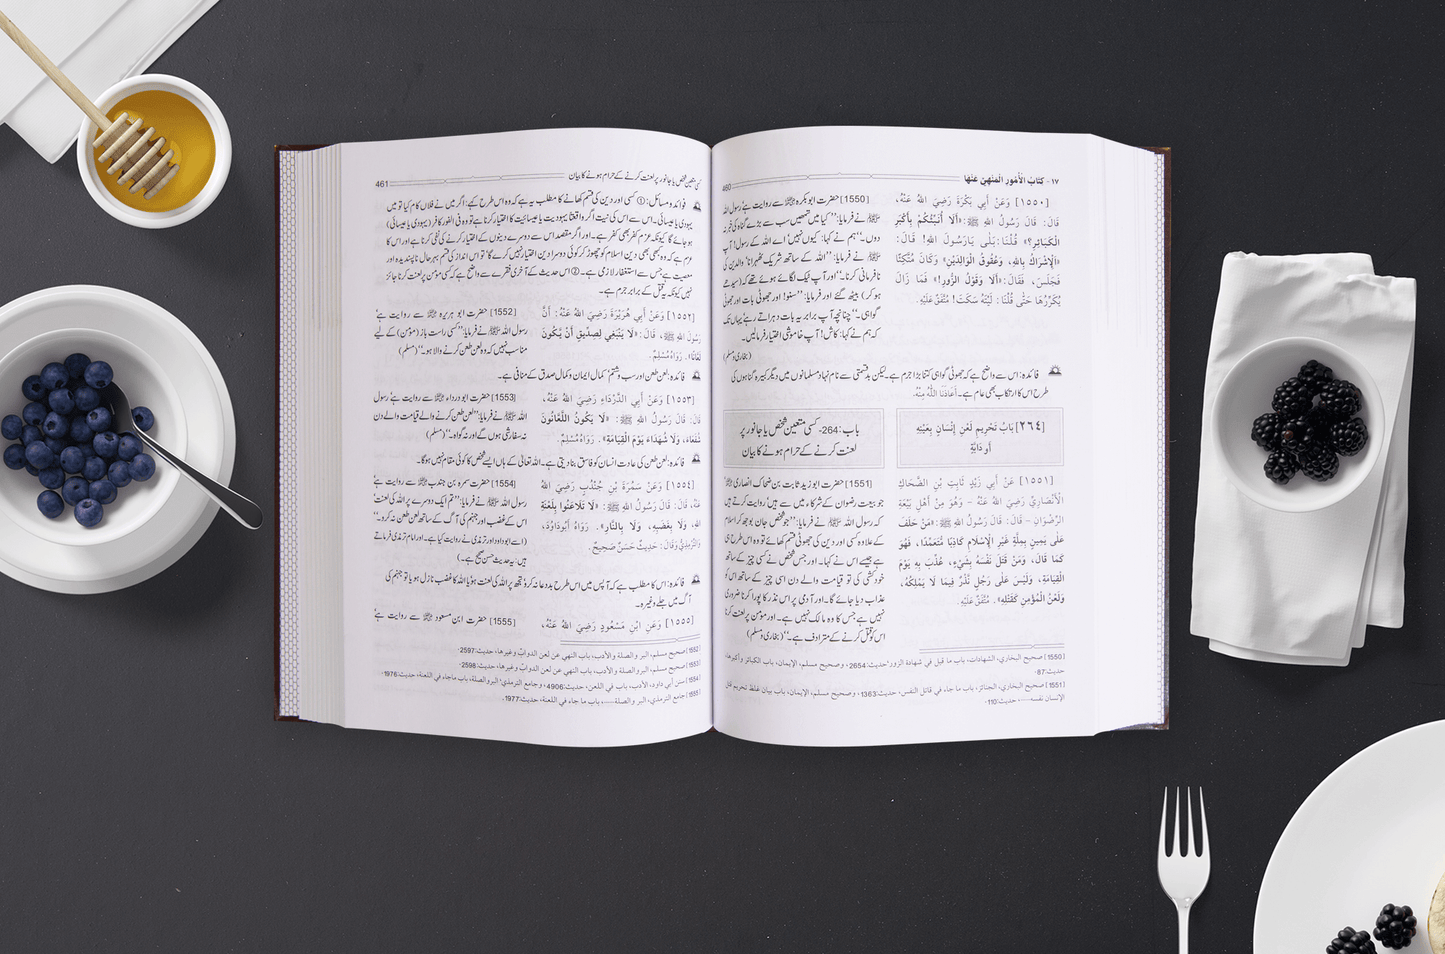 ١٧ - كتَابُ الْأُمُورِ الْمَنْهِيِّ عَنْهَا
460
[١٥٥٠] وَعَنْ أَبِي بَكْرَةَ رَضِيَ اللهُ عَنْهُ،
قَالَ: قَالَ رَسُولُ اللهِ ﷺ: «أَلَا أُنَبِّئُكُمْ بِأَكْبَرِ
الْكَبَائِرِ؟» قُلْنَا: بَلٰى يَارَسُولَ اللهِ! قَالَ:
«الْإِشْرَاكُ بِاللهِ، وَعُقُوقُ الْوَالِدَيْنِ» وَكَانَ مُتَّكِئًا
فَجَلَسَ، فَقَالَ: «أَلَا وَقَوْلُ الزُّورِ!» فَمَا زَالَ
يُكَرِّرُهَا حَتّٰى قُلْنَا: لَيْتَهُ سَكَتَ! مُتَّفَقٌ عَلَيْهِ.
[1550] حضرت ابو بکرہ ﷛ سے روایت ہے رسول اللہ
ﷺ نے فرمایا: ’’کیا میں تمھیں سب سے بڑے گناہ کی خبر نہ
دوں۔‘‘ ہم نے کہا: کیوں نہیں اے اللہ کے رسول! آپ
ﷺ نے فرمایا: ’’اللہ کے ساتھ شریک ٹھہرانا، والدین کی
نافرمانی کرنا۔‘‘ اور آپ ٹیک لگائے ہوئے تھے کہ (سیدھے
ہو کر) بیٹھ گئے اور فرمایا: ’’سنو! اور جھوٹی بات اور جھوٹی
گواہی۔‘‘ چنانچہ آپ برابر یہ بات دہراتے رہے یہاں تک
کہ ہم نے کہا: کاش! آپ خاموشی اختیار فرمائیں۔
(بخاری و مسلم)
فائدہ: اس سے واضح ہے کہ جھوٹی گواہی کتنا بڑا جرم ہے۔ لیکن بدقسمتی سے نام نہاد مسلمانوں میں دیگر کبیرہ گناہوں کی
طرح اس کا ارتکاب بھی عام ہے۔ أَعَاذَنَا اللّٰهُ مِنْهُ.
[٢٦٤] بَابُ تَحْرِيمِ لَعْنِ إِنْسَانٍ بِعَيْنِهِ
أَو دَابَّةٍ
باب: 264- کسی متعین شخص یا جانور پر
لعنت کرنے کے حرام ہونے کا بیان
[١٥٥١] عَنْ أَبِي زَيْدٍ ثَابِتِ بْنِ الضَّحَّاكِ
الْأَنْصَارِيِّ رَضِيَ اللهُ عَنْهُ - وَهُوَ مِنْ أَهْلِ بَيْعَةِ
الرِّضْوَانِ - قَالَ: قَالَ رَسُولُ اللهِ ﷺ: «مَنْ حَلَفَ
عَلٰى يَمِينٍ بِمِلَّةٍ غَيْرِ الْإِسْلَامِ كَاذِبًا مُتَعَمِّدًا، فَهُوَ
كَمَا قَالَ، وَمَنْ قَتَلَ نَفْسَهُ بِشَيْءٍ، عُذِّبَ بِهِ يَوْمَ
الْقِيَامَةِ، وَلَيْسَ عَلٰى رَجُلٍ نَذْرٌ فِيمَا لَا يَمْلِكُهُ،
وَلَعْنُ الْمُؤْمِنِ كَقَتْلِهِ». مُتَّفَقٌ عَلَيْهِ.
[1551] حضرت ابو زید ثابت بن ضحاک انصاری ﷛
جو بیعت رضوان کے شرکاء میں سے ہیں روایت کرتے ہیں
کہ رسول اللہ ﷺ نے فرمایا: ’’جو شخص جان بوجھ کر اسلام
کے علاوہ کسی اور دین کی جھوٹی قسم کھائے تو وہ اسی طرح ہی
ہے جیسے اس نے کہا۔ اور جس شخص نے کسی چیز کے ساتھ
خودکشی کی تو قیامت والے دن اسی چیز کے ساتھ اس کو
عذاب دیا جائے گا۔ اور آدمی پر اس نذر کا پورا کرنا ضروری
نہیں ہے جس کا وہ مالک نہیں ہے۔ اور مومن پر لعنت کرنا
اس کو قتل کرنے کے مترادف ہے۔‘‘ (بخاری و مسلم)
[1550] صحيح البخاري، الشهادات، باب ما قيل في شهادة الزور، حديث: 2654، وصحيح مسلم، الإيمان، باب الكبائر وأكبرها،
حديث: 87.
[1551] صحيح البخاري، الجنائز، باب ما جاء في قاتل النفس، حديث: 1363، وصحيح مسلم، الإيمان، باب بيان غلظ تحريم قتل
الإنسان نفسه.....، حديث: 110.
کسی متعین شخص یا جانور پر لعنت کرنے کے حرام ہونے کا بیان
461
فوائد و مسائل: ① کسی اور دین کی قسم کھانے کا مطلب یہ ہے کہ وہ اس طرح کہے: اگر میں نے فلاں کام کیا تو میں
یہودی یا عیسائی۔ اس سے اس کی نیت اگر واقعتاً یہودیت یا عیسائیت کا اختیار کرنا ہے تو وہ فی الفور کافر (یہودی یا عیسائی)
ہو جائے گا کیونکہ عزم کفر بھی کفر ہے۔ اور اگر مقصد اس سے دوسرے دینوں کے اختیار کرنے کی نفی کرنا ہے اور اس کا
عزم ہے کہ وہ کبھی بھی دین اسلام کو چھوڑ کر کوئی دوسرا دین اختیار نہیں کرے گا، تو اس انداز کی قسم بہرحال ناپسندیدہ اور
معصیت ہے جس سے استغفار لازمی ہے۔ ② اس حدیث کے آخری فقرے سے واضح ہے کہ کسی مومن پر لعنت کرنا جائز
نہیں کیونکہ یہ قتل کے برابر جرم ہے۔
[١٥٥٢] وَعَنْ أَبِي هُرَيْرَةَ رَضِيَ اللهُ عَنْهُ: أَنَّ
رَسُولَ اللهِ ﷺ، قَالَ: «لَا يَنْبَغِي لِصِدِّيقٍ أَنْ يَكُونَ
لَعَّانًا». رَوَاهُ مُسْلِمٌ.
[1552] حضرت ابو ہریرہ ﷛ سے روایت ہے
رسول اللہ ﷺ نے فرمایا: ’’کسی راست باز (مومن) کے لیے
مناسب نہیں کہ وہ لعن طعن کرنے والا ہو۔‘‘ (مسلم)
فائدہ: لعن طعن اور سب و شتم، کمال ایمان و کمال صدق کے منافی ہے۔
[١٥٥٣] وَعَنْ أَبِي الدَّرْدَاءِ رَضِيَ اللهُ عَنْهُ،
قَالَ: قَالَ رَسُولُ اللهِ ﷺ: «لَا يَكُونُ اللَّعَّانُونَ
شُفَعَاءَ، وَلَا شُهَدَاءَ يَوْمَ الْقِيَامَةِ». رَوَاهُ مُسْلِمٌ.
[1553] حضرت ابو درداء ﷛ سے روایت ہے رسول
اللہ ﷺ نے فرمایا: ’’لعن طعن کرنے والے قیامت والے دن
نہ سفارشی ہوں گے اور نہ گواہ۔‘‘ (مسلم)
فائدہ: لعن طعن کی عادت انسان کو فاسق بنا دیتی ہے۔ اللہ تعالیٰ کے ہاں ایسے شخص کا کوئی مقام نہیں ہوگا۔
[١٥٥٤] وَعَنْ سَمُرَةَ بْنِ جُنْدُبٍ رَضِيَ اللهُ
عَنْهُ، قَالَ: قَالَ رَسُولُ اللهِ ﷺ: «لَا تَلَاعَنُوا بِلَعْنَةِ
اللهِ، وَلَا بِغَضَبِهِ، وَلَا بِالنَّارِ». رَوَاهُ أَبُودَاوُدَ،
وَالتِّرْمِذِيُّ وَقَالَ: حَدِيثٌ حَسَنٌ صَحِيحٌ.
[1554] حضرت سمرہ بن جندب ﷛ سے روایت ہے
رسول اللہ ﷺ نے فرمایا: ’’تم ایک دوسرے پر اللہ کی لعنت،
اس کے غضب اور جہنم کی آگ کے ساتھ لعن طعن نہ کرو۔‘‘
(اسے ابوداود اور ترمذی نے روایت کیا ہے۔ اور امام ترمذی فرماتے
ہیں: یہ حدیث حسن صحیح ہے۔)
فائدہ: اس کا مطلب ہے کہ آپس میں اس طرح بددعا نہ کرو: تجھ پر اللہ کی لعنت ہو یا اللہ کا غضب نازل ہو یا تو جہنم کی
آگ میں جلے وغیرہ۔
[١٥٥٥] وَعَنِ ابْنِ مَسْعُودٍ رَضِيَ اللهُ عَنْهُ،
[1555] حضرت ابن مسعود ﷛ سے روایت ہے
[1552] صحيح مسلم، البر والصلة والأدب، باب النهي عن لعن الدواب وغيرها، حديث: 2597.
[1553] صحيح مسلم، البر والصلة والأدب، باب النهي عن لعن الدواب وغيرها، حديث: 2598.
[1554] سنن أبي داود، الأدب، باب في اللعن، حديث: 4906، وجامع الترمذي، البر والصلة، باب ماجاء في اللعنة، حديث: 1976.
[1555] جامع الترمذي، البر والصلة.....، باب ما جاء في اللعنة، حديث: 1977.